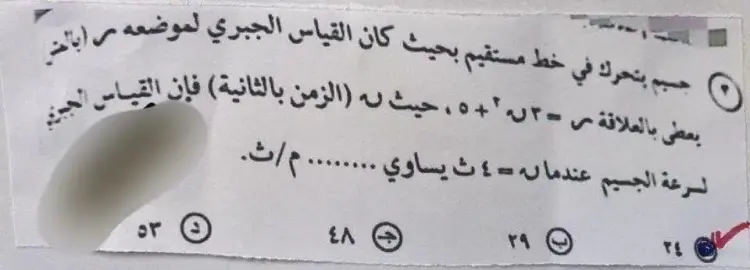 ٢ جسيم يتحرك في خط مستقيم بحيث كان القياس الجبري لموضعه س (بالمتر)
يعطى بالعلاقة س = ٣ن٢ + ٥ ، حيث ن (الزمن بالثانية) فإن القياس الجبري
لسرعة الجسيم عندما ن = ٤ ث يساوي ........ م/ث.
٢٤ ب ٢٩ ج ٤٨ د ٥٣